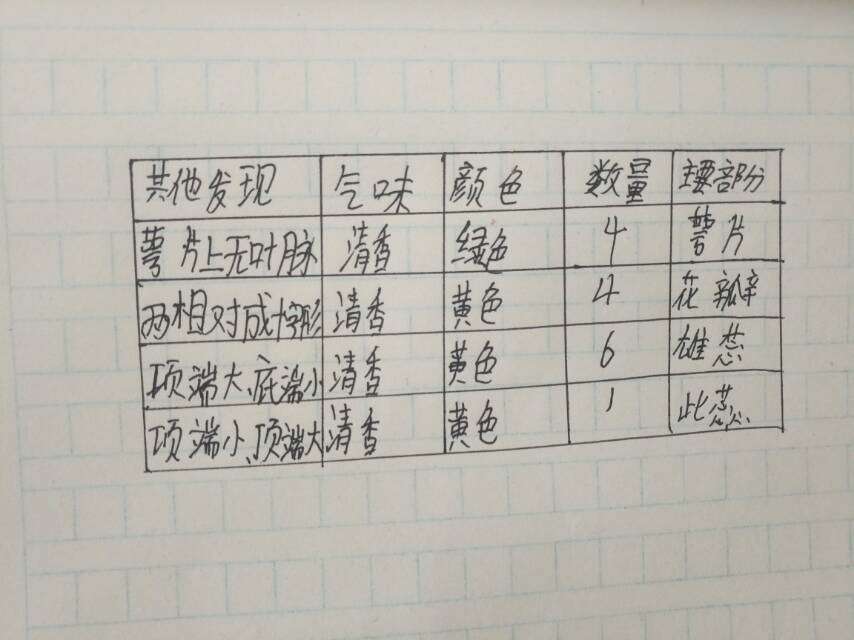 其他发现 气味 颜色 数量 主要部分
萼片上无叶脉 清香 绿色 4 萼片
两相对成十字形 清香 黄色 4 花瓣
顶端大、底端小 清香 黄色 6 雄蕊
顶端小、顶端大 清香 黄色 1 此蕊